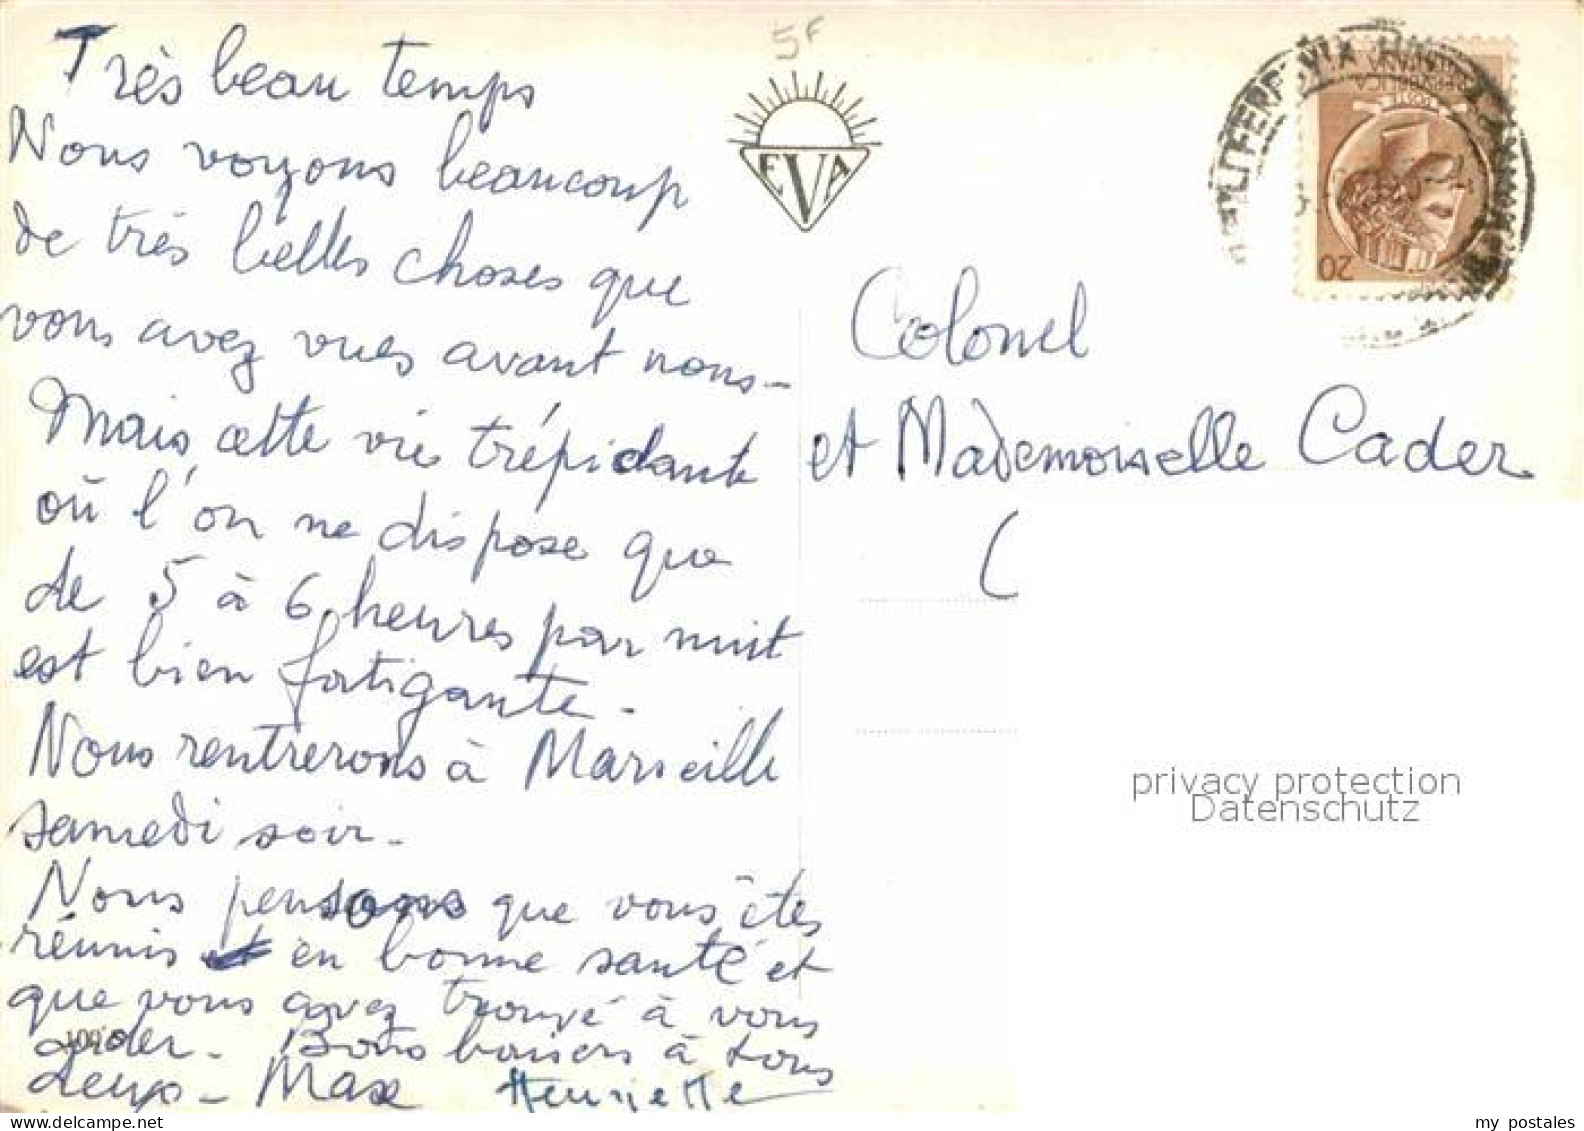 5F
Très beau temps
Nous voyons beaucoup
de très belles choses que
vous avez vues avant nous-
Mais cette vie trépidante
où l'on ne dispose que
de 5 à 6 heures par nuit
est bien fatigante -
Nous rentrerons à Marseille
samedi soir -
Nous pensons que vous êtes
réunis en bonne santé et
que vous avez trouvé à vous
aider - Bons baisers à tous
deux - Max Henriette
109
EVA
REPVBBLICA
ITALIANA
POSTE
20
Colonel
et Mademoiselle Cader
(
privacy protection
Datenschutz
my postales